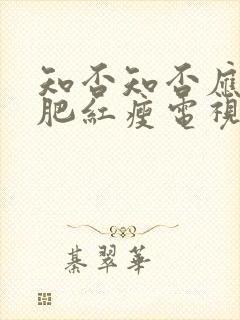 知否知否應
肥紅瘦電視
綦翠華